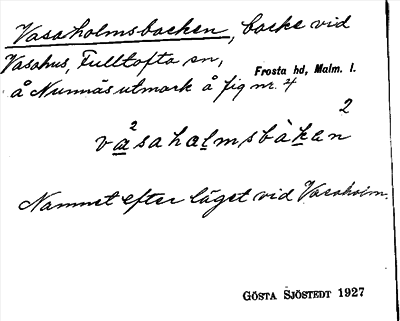 Vasaholmsbacken, backe vid
Vasahus, Fulltofta sn,
Frosta hd, Malm. l.
å Nunnäs utmark å fig nr. 4
2
2
væsahalmsbàkan
Namnet efter läget vid Vasaholm.
GÖSTA SJÖSTEDT 1927